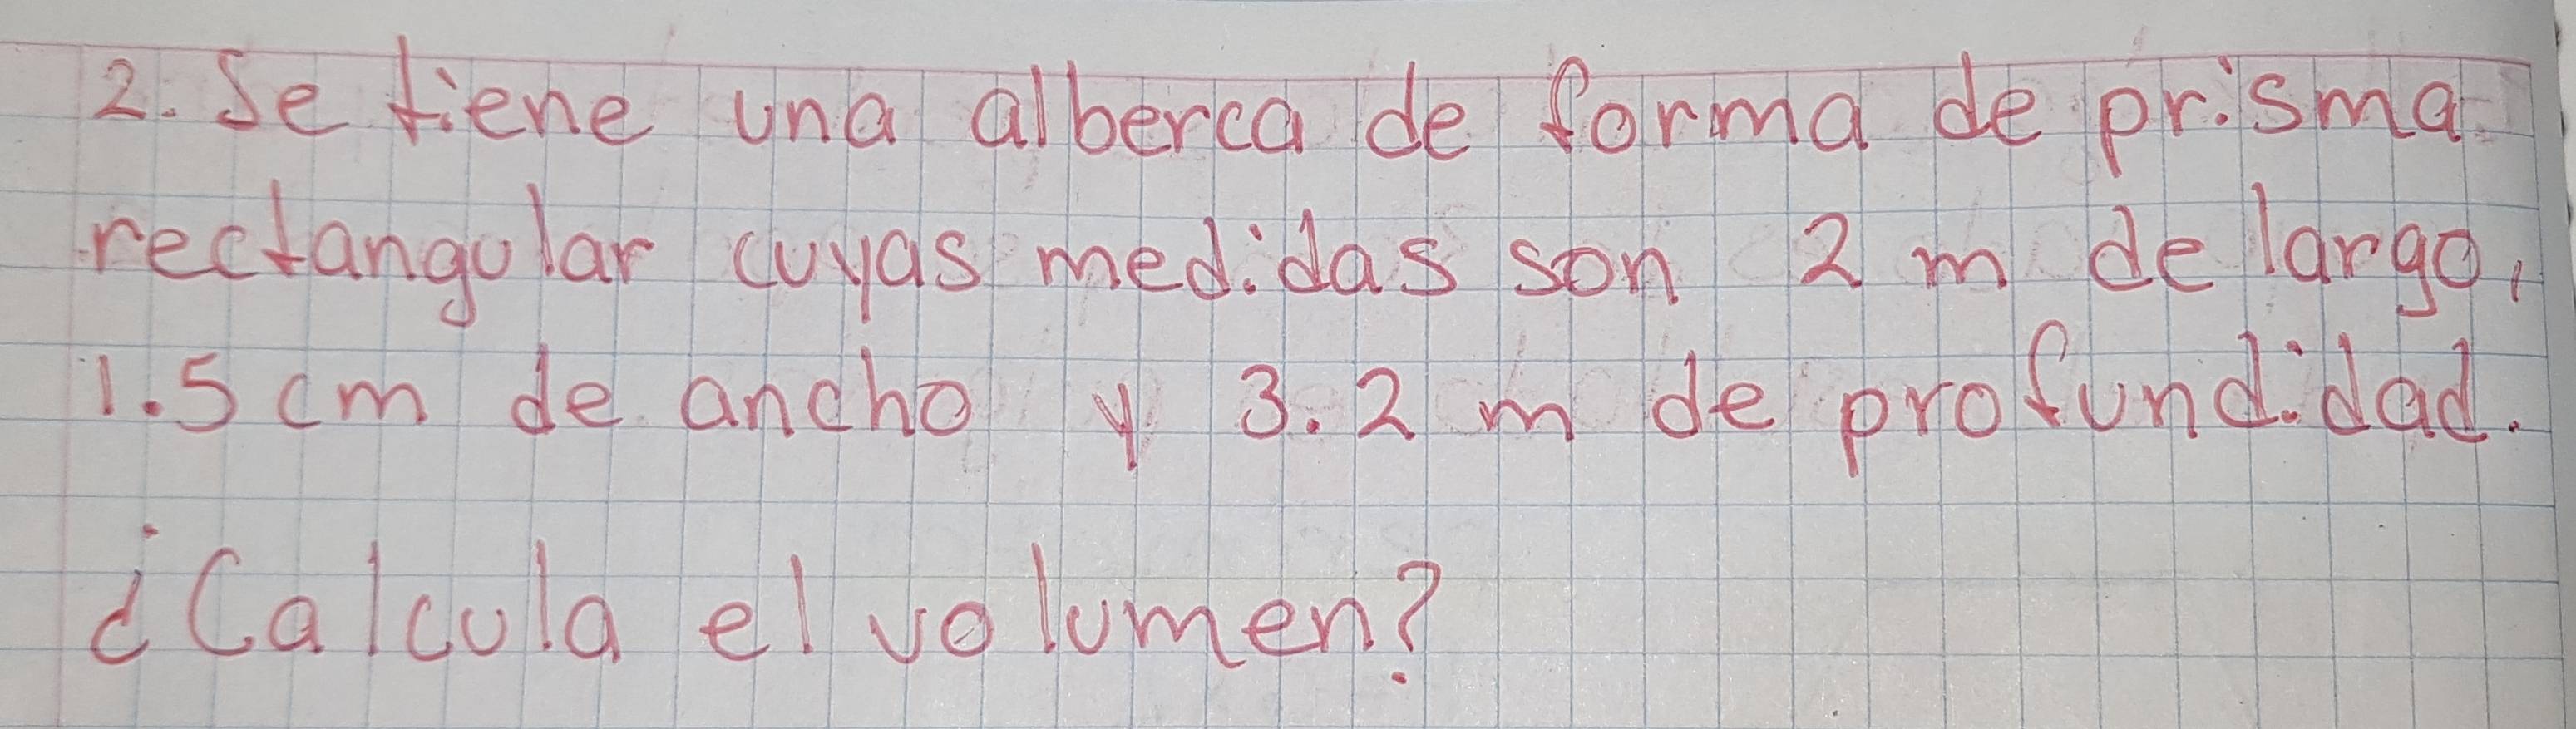 2. Se tiene una alberca de forma de prisma
rectangular cuyas medidas son 2 m de largo,
1.5 cm de ancho y 3.2 m de profundidad.
¿Calcula el volumen?